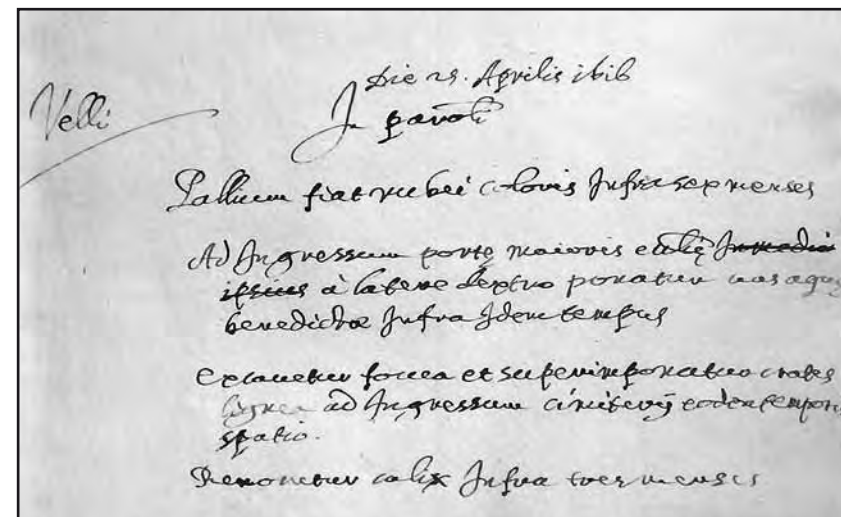 Velli
Die 25. Aprilis 1616
In paroli
Pallium fiat rubei coloris Infra sex menses
Ad Ingressum portę maioris ecclię Inmedio
ipsius à latere dextro ponatur uas aquę
benedictae Infra Idem tempus
Excauetur fouea et superimponatur crates
lignea ad Ingressum cimiterij eodem temporis
spatio.
Renouetur calix Infra tres menses